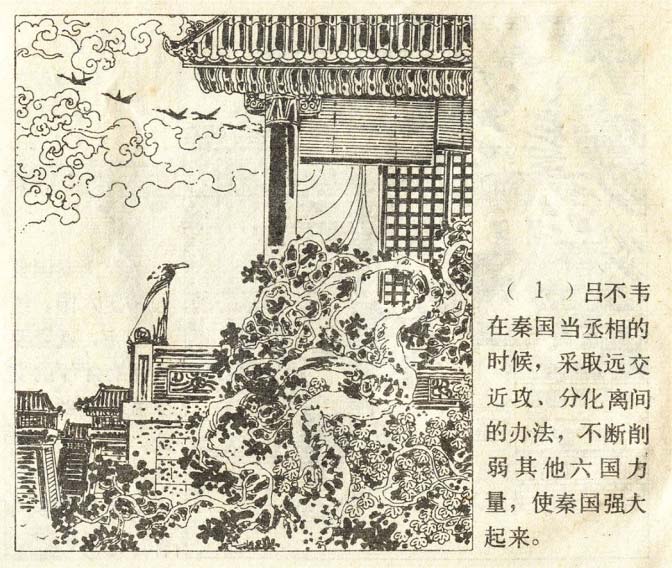 （1）吕不韦
在秦国当丞相的
时候，采取远交
近攻、分化离间
的办法，不断削
弱其他六国力
量，使秦国强大
起来。